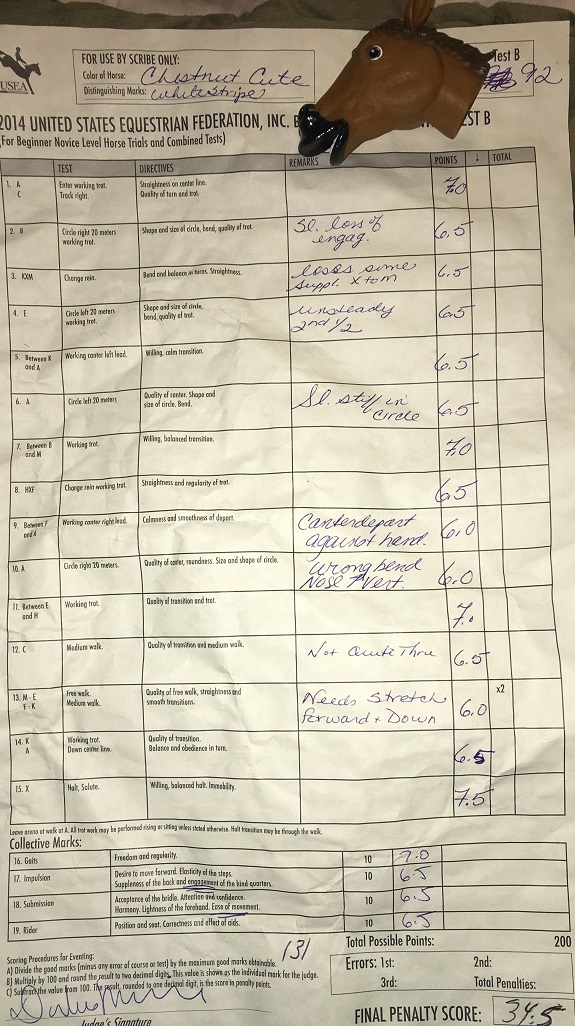 USEA
FOR USE BY SCRIBE ONLY:
Color of Horse: Chestnut Cute
Distinguishing Marks: White stripe
Test B
92
2014 UNITED STATES EQUESTRIAN FEDERATION, INC.
EST B
(For Beginner Novice Level Horse Trials and Combined Tests)
TEST DIRECTIVES REMARKS POINTS ↓ TOTAL
1. A Enter working trot. Straightness on center line. 7.0
C Track right. Quality of turn and trot.
2. B Circle right 20 meters Shape and size of circle, bend, quality of trot. Sl. loss of 6.5
working trot. engag.
3. KXM Change rein. Bend and balance in turns. Straightness. loses some 6.5
suppl. X to M
4. E Circle left 20 meters Shape and size of circle, unsteady 6.5
working trot. bend, quality of trot. 2nd 1/2
5. Between K Working canter left lead. Willing, calm transition. 6.5
and A
6. A Circle left 20 meters Quality of canter. Shape and Sl. stiff in 6.5
size of circle. Bend. circle
7. Between B Working trot. Willing, balanced transition. 7.0
and M
8. HXF Change rein working trot. Straightness and regularity of trot. 6.5
9. Between F Working canter right lead. Calmness and smoothness of depart. Canter depart 6.0
and A against hand.
10. A Circle right 20 meters. Quality of canter, roundness. Size and shape of circle. wrong bend 6.0
Nose ↑ Vert.
11. Between E Working trot. Quality of transition and trot. 7.0
and H
12. C Medium walk. Quality of transition and medium walk. Not Quite Thru 6.5
13. M - E Free walk. Quality of free walk, straightness and Needs stretch 6.0 x2
E - K Medium walk. smooth transitions. forward + Down
14. K Working trot. Quality of transition. 6.5
A Down center line. Balance and obedience in turn.
15. X Halt, Salute. Willing, balanced halt. Immobility. 7.5
Leave arena at walk at A. All trot work may be performed rising or sitting unless stated otherwise. Halt transition may be through the walk.
Collective Marks:
16. Gaits Freedom and regularity. 10 7.0
17. Impulsion Desire to move forward. Elasticity of the steps. 10 6.5
Suppleness of the back and engagement of the hind quarters.
18. Submission Acceptance of the bridle. Attention and confidence. 10 6.5
Harmony. Lightness of the forehand. Ease of movement.
19. Rider Position and seat. Correctness and effect of aids. 10 6.5
131
Total Possible Points: 200
Scoring Procedures for Eventing:
A) Divide the good marks (minus any error of course or test) by the maximum good marks obtainable.
B) Multiply by 100 and round the result to two decimal digits. This value is shown as the individual mark for the judge.
C) Subtract the value from 100. The result, rounded to one decimal digit, is the score in penalty points.
Errors: 1st: 2nd:
3rd: Total Penalties:
Judge's Signature
FINAL PENALTY SCORE: 34.5